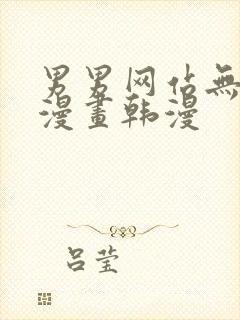 男男网站無
漫畫韩漫
吕莹